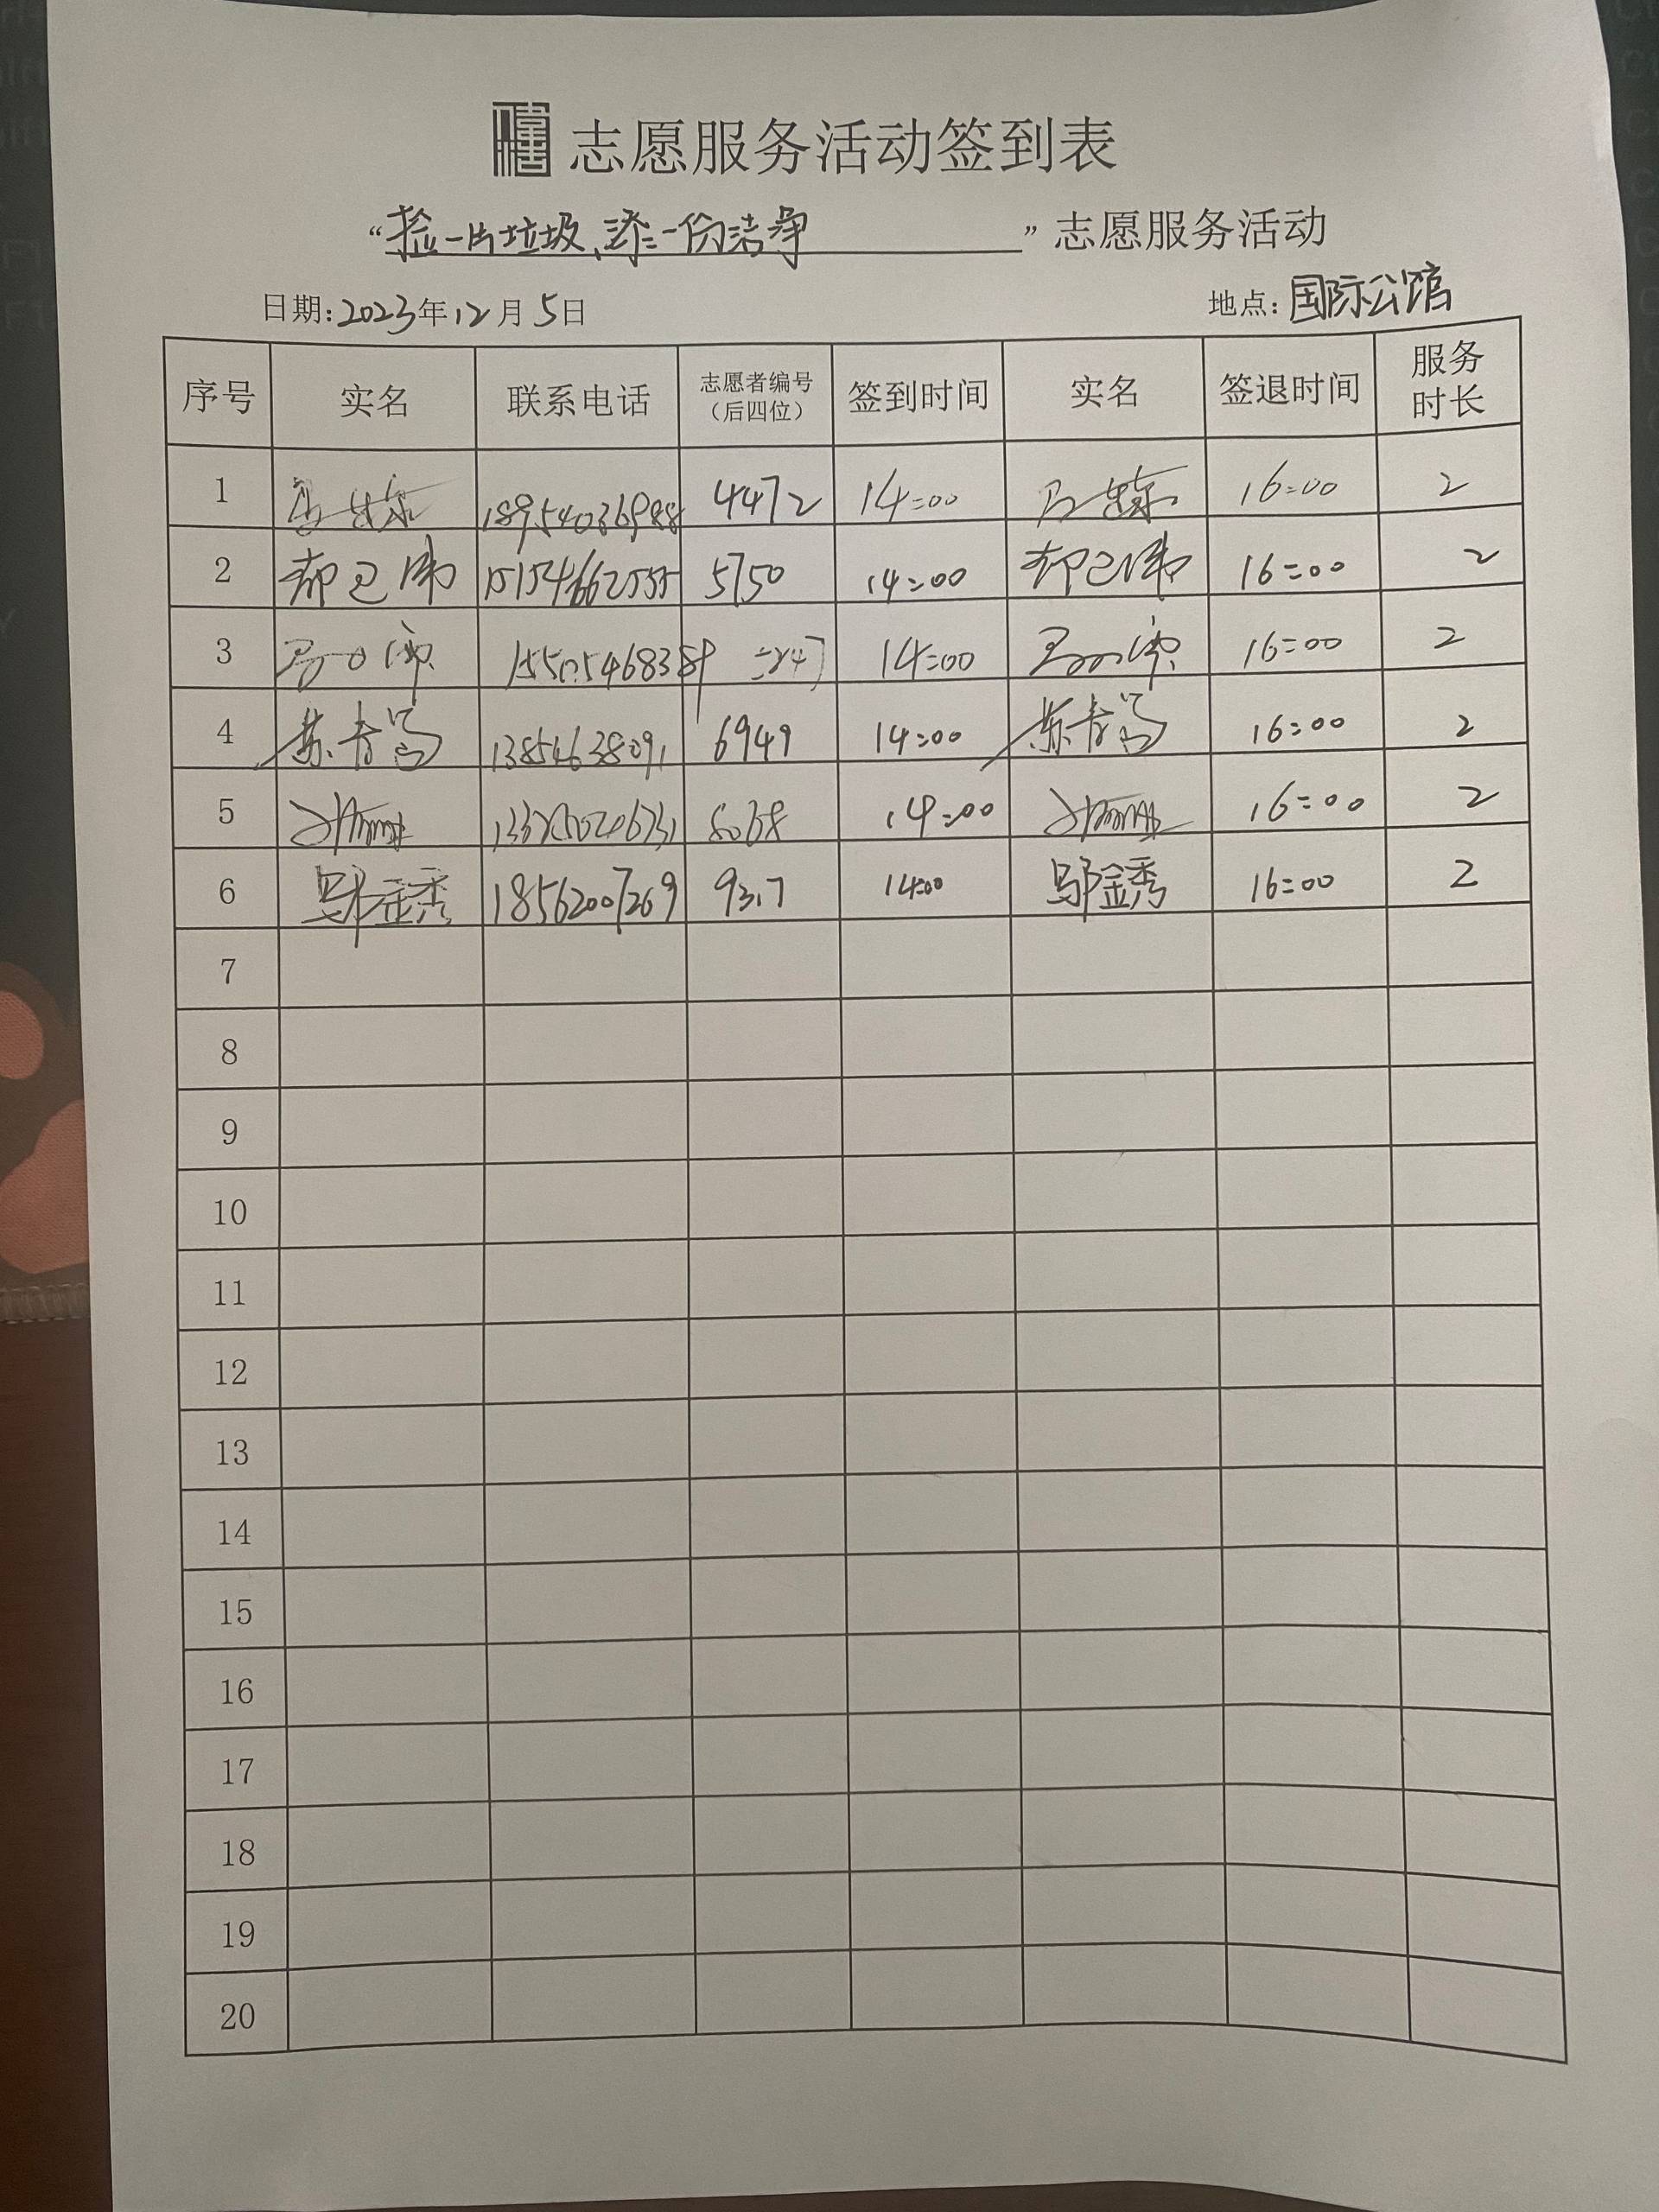 志愿服务活动签到表
“捡一片垃圾、添一份洁净”志愿服务活动
日期:2023年12月5日 地点:国际公馆
序号 实名 联系电话 志愿者编号(后四位) 签到时间 实名 签退时间 服务时长
1 18954036988 4472 14:00 16:00 2
2 15154662555 5750 14:00 16:00 2
3 14:00 16:00 2
4 苏青 13854638091 6949 14:00 苏青 16:00 2
5 8068 14:00 16:00 2
6 邬金秀 18562007269 9317 14:00 邬金秀 16:00 2
7
8
9
10
11
12
13
14
15
16
17
18
19
20